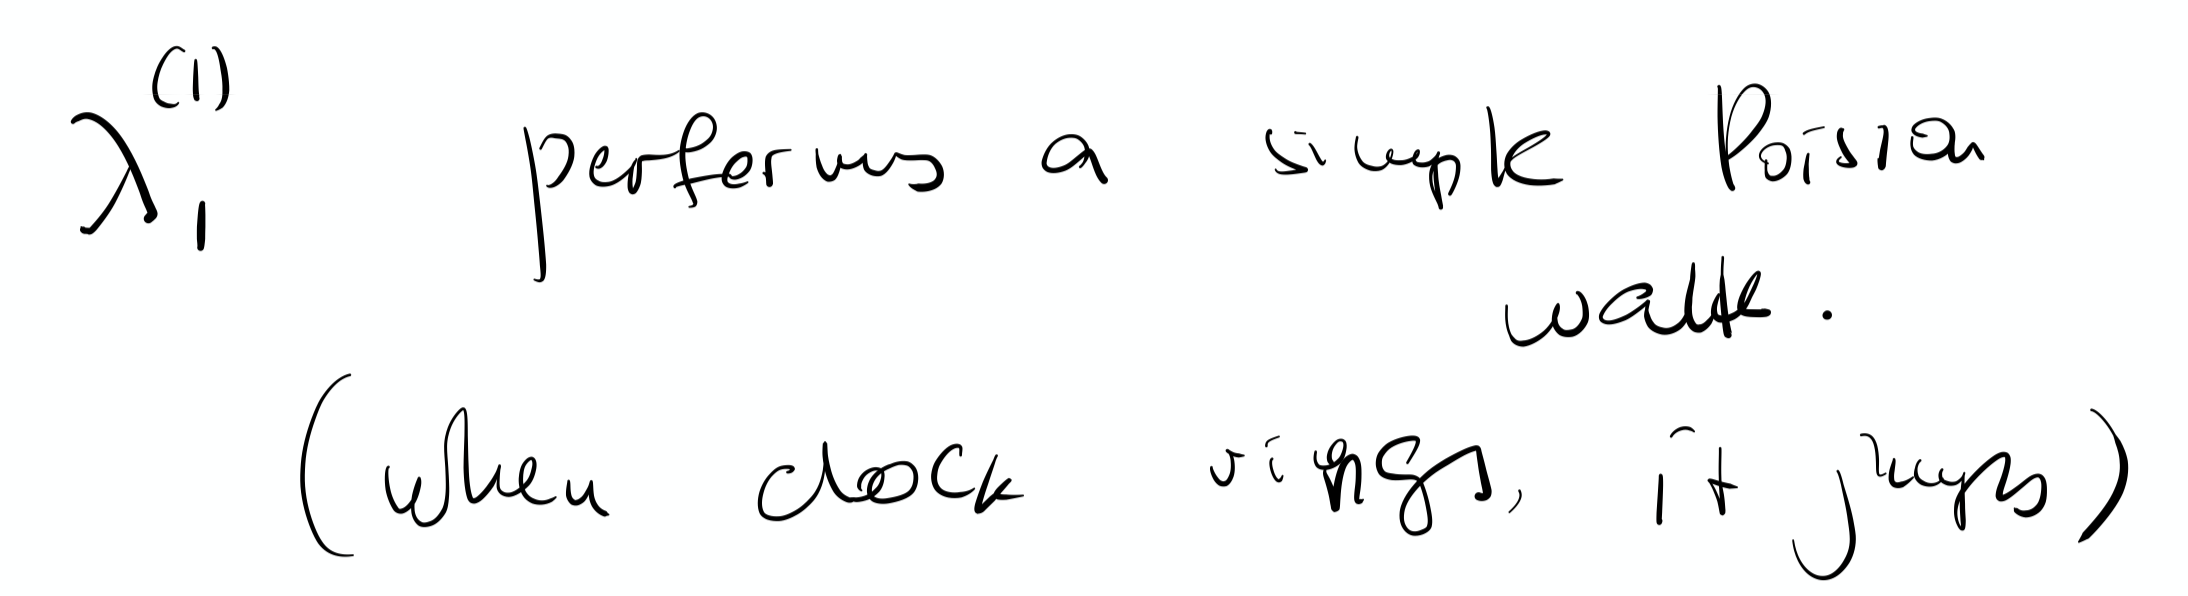 λ₁⁽¹⁾ performs a simple Poisson
walk.
(when clock rings, it jumps)